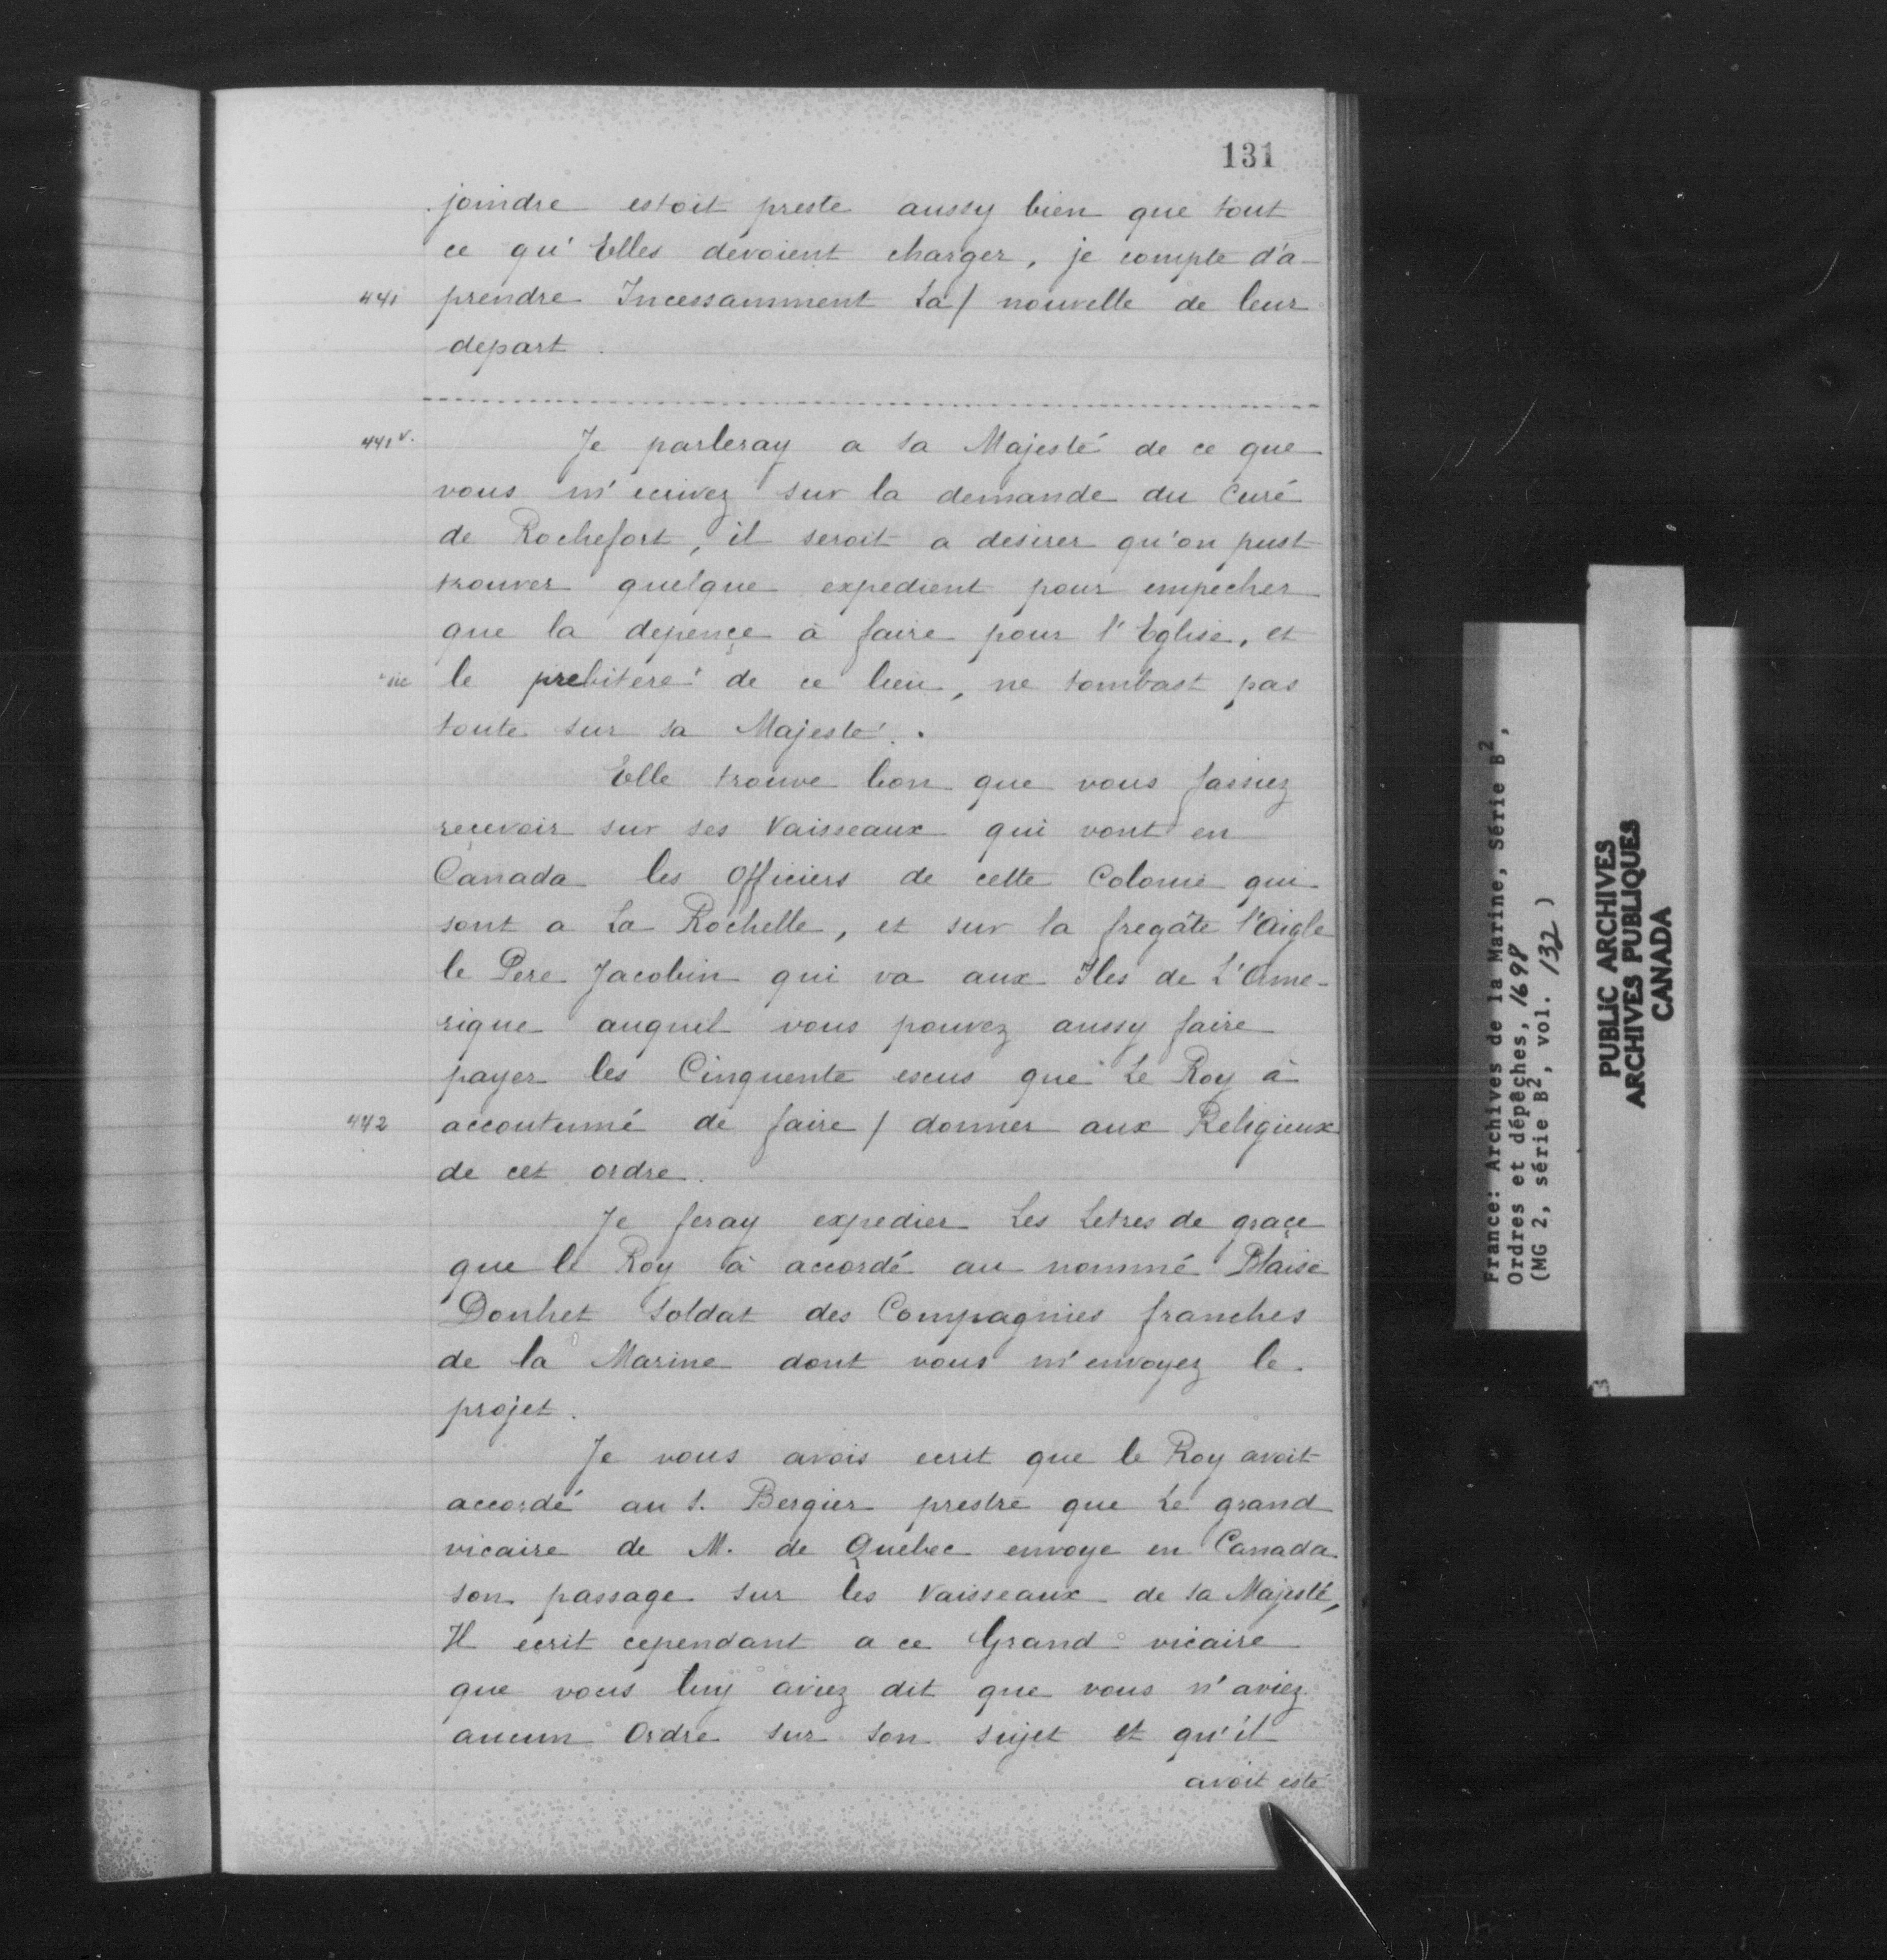 131
joindre estoit preste aussy bien que tout
ce qu'Elles devoient charger, je compte d'a-
441 prendre Incessamment La / nouvelle de leur
depart.
441 v. Je parleray a sa Majesté de ce que
vous m'ecrivez sur la demande du Curé
de Rochefort, il seroit a desirer qu'on pust
trouver quelque expedient pour empecher
que la depençe à faire pour l'Eglise, et
sic le prebitere de ce lieu, ne tombast pas
toute sur sa Majesté.
Elle trouve bon que vous fassiez
reçevoir sur ses Vaisseaux qui vont en
Canada les Officiers de cette Colonie qui
sont a La Rochelle, et sur la fregâte l'Aigle
le Pere Jacobin qui va aux Iles de L'Ame-
rique auquel vous pouvez aussy faire
payer les Cinquente escus que Le Roy à
442 accoutumé de faire / donner aux Religieux
de cet ordre.
Je feray expedier Les Letres de graçe
que le Roy à accordé au nommé Blaise
Douhet Soldat des Compagnies franches
de la Marine dont vous m'envoyez le
projet.
Je vous avois ecrit que le Roy avoit
accordé au S. Bergier prestre que Le grand
vicaire de M. de Québec envoye en Canada
son passage sur les Vaisseaux de sa Majesté,
Il ecrit cependant a ce Grand vicaire
que vous luy aviez dit que vous n'aviez
aucun Ordre sur son sujet et qu'il
avoit esté
France: Archives de la Marine, Série B2,
Ordres et dépêches, 1698
(MG 2, série B2, vol. 132)
PUBLIC ARCHIVES
ARCHIVES PUBLIQUES
CANADA